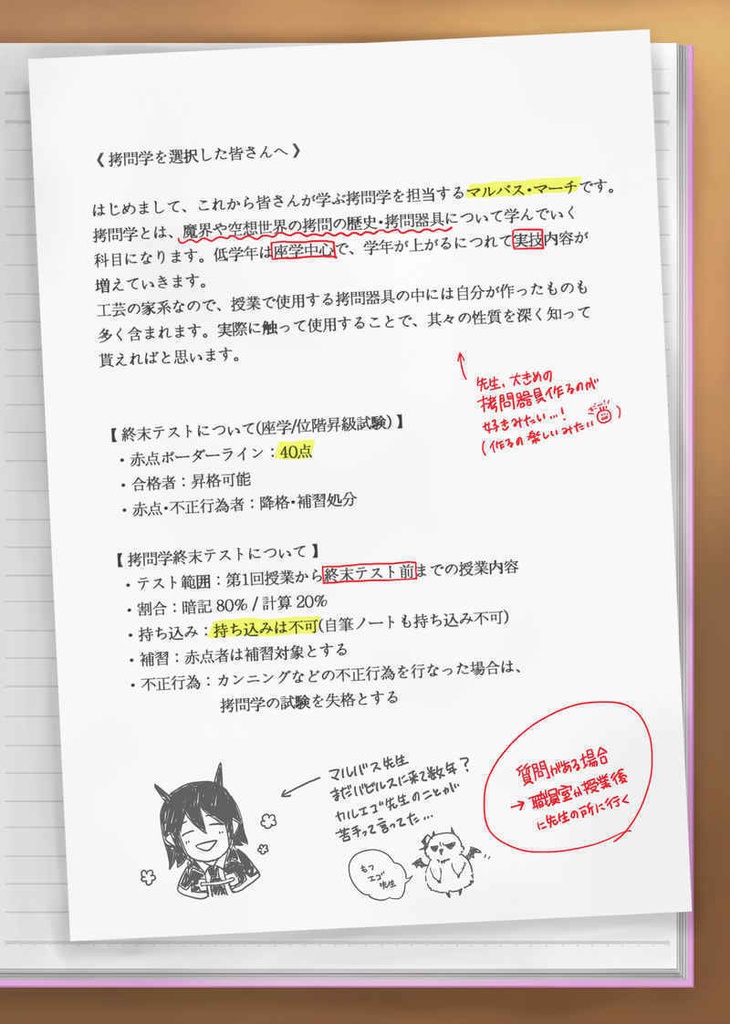 《 拷問学を選択した皆さんへ 》
はじめまして、これから皆さんが学ぶ拷問学を担当するマルバス・マーチです。
拷問学とは、魔界や空想世界の拷問の歴史・拷問器具について学んでいく
科目になります。低学年は座学中心で、学年が上がるにつれて実技内容が
増えていきます。
工芸の家系なので、授業で使用する拷問器具の中には自分が作ったものも
多く含まれます。実際に触って使用することで、其々の性質を深く知って
貰えればと思います。
先生、大きめの
拷問器具作るのが
好きみたい…!
(作るの楽しいみたい)
【 終末テストについて(座学/位階昇級試験) 】
・赤点ボーダーライン：40点
・合格者：昇格可能
・赤点・不正行為者：降格・補習処分
【 拷問学終末テストについて 】
・テスト範囲：第1回授業から終末テスト前までの授業内容
・割合：暗記 80% / 計算 20%
・持ち込み：持ち込みは不可(自筆ノートも持ち込み不可)
・補習：赤点者は補習対象とする
・不正行為：カンニングなどの不正行為を行なった場合は、
拷問学の試験を失格とする
マルバス先生
まだバビルスに来て数年？
カルエゴ先生のことが
苦手って言ってた…
もつ
エゴ
先生
質問がある場合
→ 職員室か授業後
に先生の所に行く